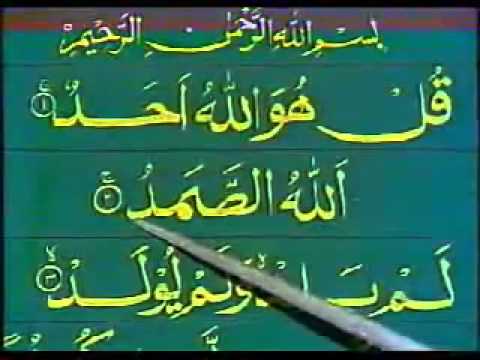 بِسْمِ اللهِ الرَّحْمٰنِ الرَّحِيْمِ
قُلْ هُوَ اللهُ اَحَدٌ ۝١
اَللهُ الصَّمَدُ ۝٢
لَمْ وَلَمْ يُوْلَدْ ۝٣